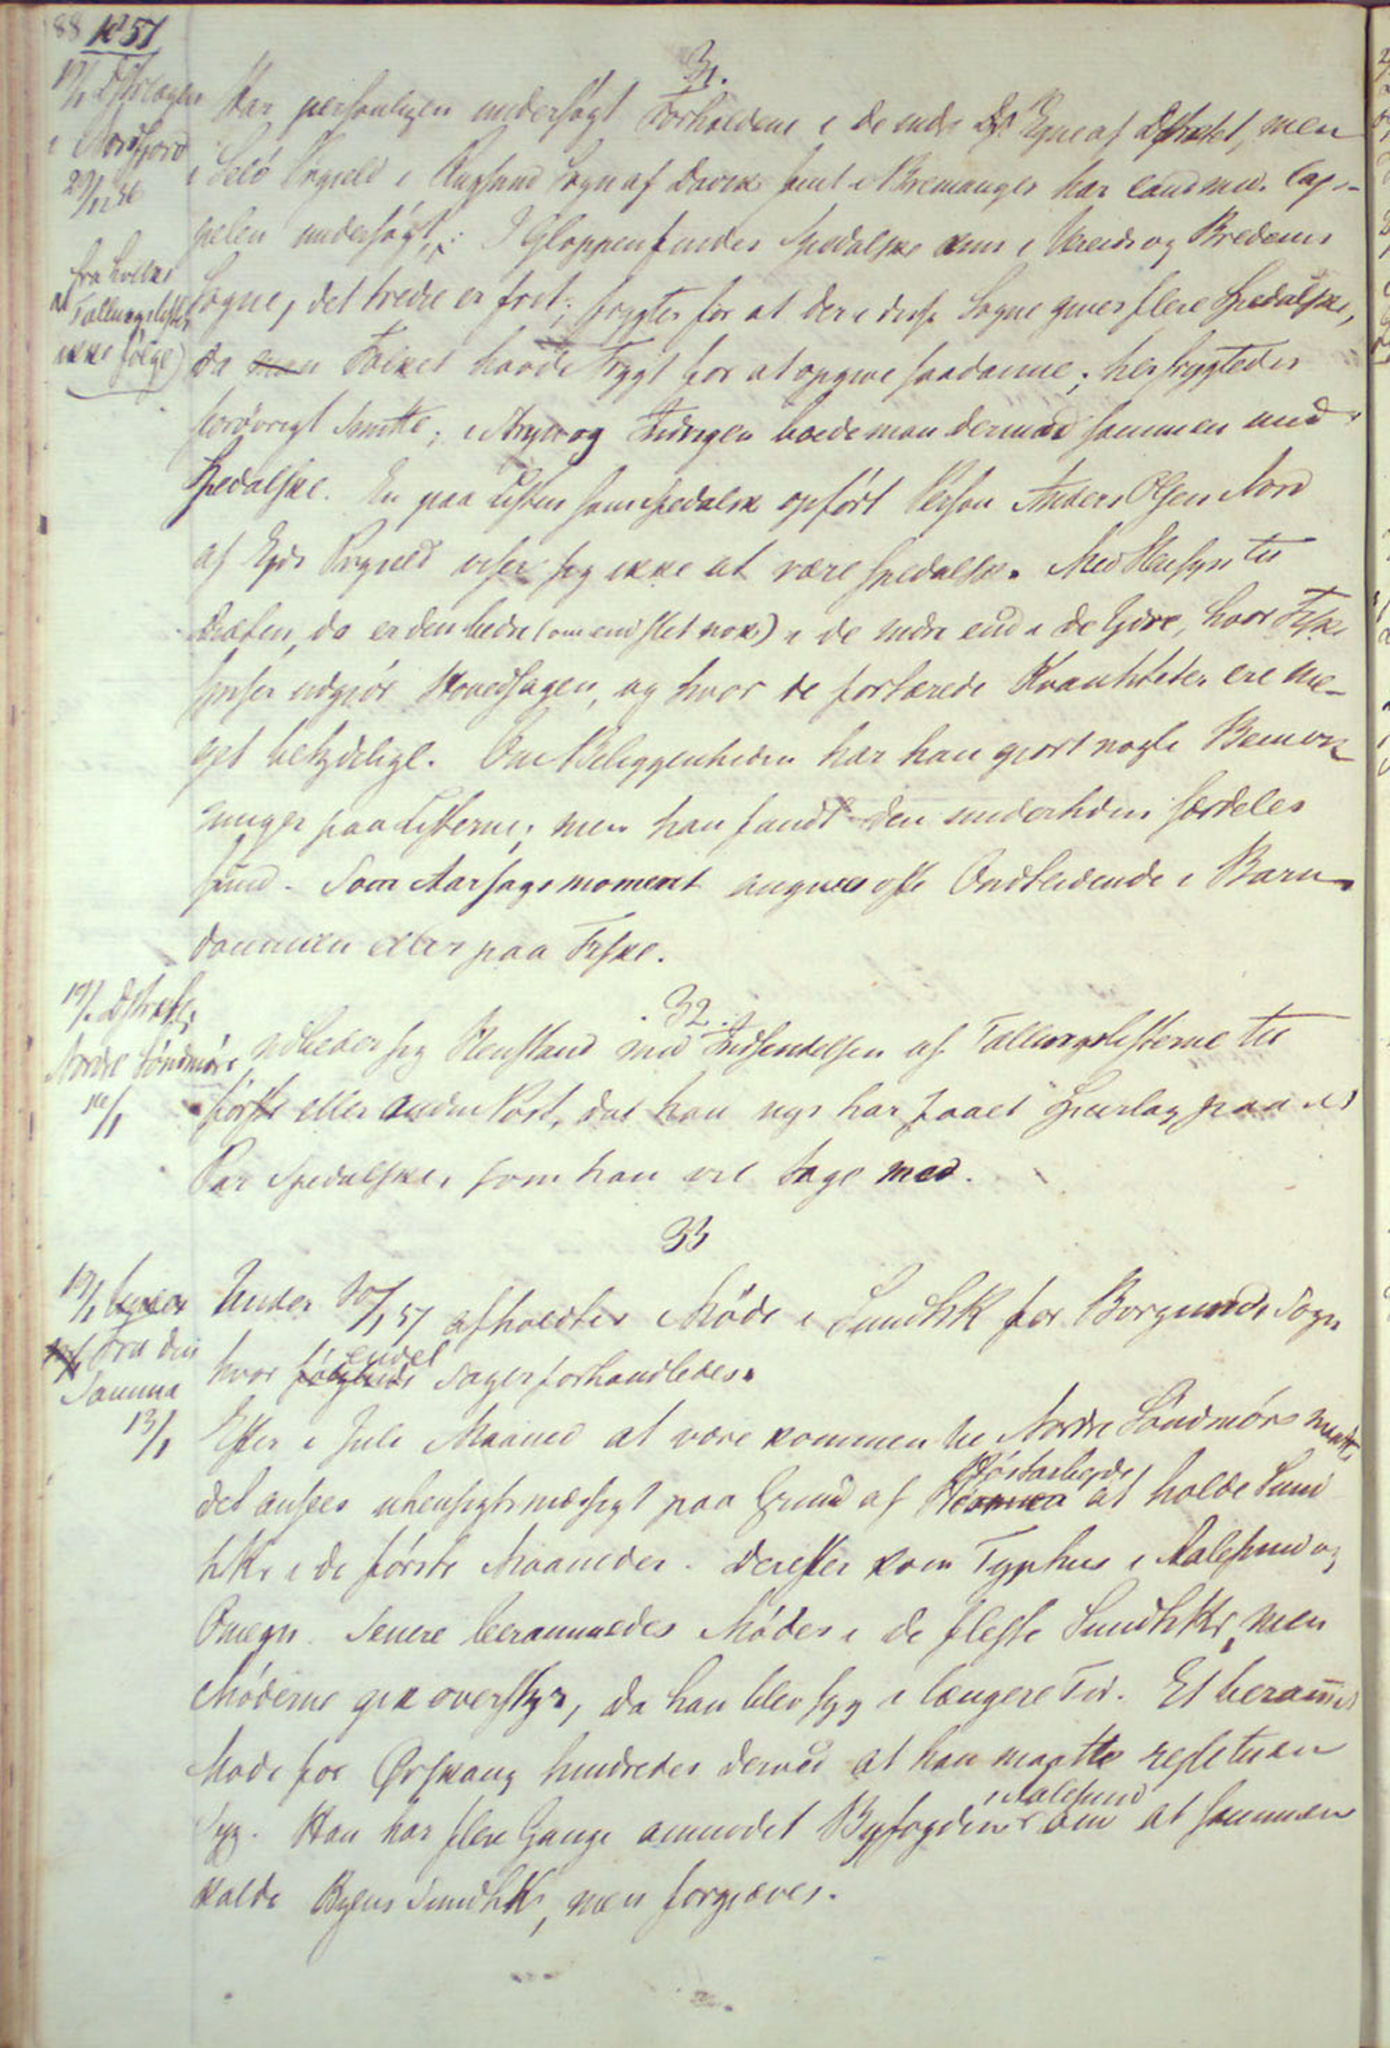 88 No 57
31.
17/1 Dstrlægen
i Nordfjord
29/12 56
(fra hvilke
at Tællingslister
ikke følge)
Har personligen undersøgt Forholdene i de indre Egne af Dstrictet, men
i Selø Prgjeld i Rugsund Sogn af Davik samt i Bremanger har cand med. Cap-
pelen undersøgt. I Gloppen findes Spedalske kun i Vereids og Bredems
Sogne, det tredie er frit; frygter for at der i disse Sogne gives flere Spedalske,
da man Folket havde Frygt for at opgive saadanne; her frygtedes
forøvrigt Smitte; i Stryn og Indvigen boede man derimod sammen med
Spedalske. En paa Listen som spedalsk opført Person Anders Olsen Nord
af Eids Prgjeld viser sig ikke at være spedalsk. Med Hensyn til
Diæten, da er den bedre (om end slet nok) i de indre end i de Ydre, hvor Fiske
spiser udgjør Hovedsagen, og hvor de fortærede Kvantiteter ere me-
get betydelige. Om Beliggenheden har han gjort nogle Bemærk
ninger paa Listerne; men han fandt den undertiden særdeles
sund. Som Aarsagsmoment angives ofte Ondtlidende i Barn
dommen eller paa Fiske.
32.
17/1 Dstrctsl.
Nordre Søndmør
14/1
udbeder sig Henstand med Indsendelsen af Tællingslisterne til
første eller anden Post, da han nys har faaet Spurlag paa et
Par Spedalske, som han vil tage med.
33
17/1
fra den
Samme
13/1
Under 10/1 57 afholdtes Møde i SundhK for Borgunds Sogn
hvor følgende endel Sager forhandledes.
Efter i Juli Maaned at være kommen til Nordre Søndmør maatte
det ansees uhensigtsmæssigt paa Grund af Høstarbeide at holde Sund
hKr i de første Maaneder. Derefter kom Typhus i Aalesund og
Omegn. Senere berammedes Møder i de fleste SundhKr, men
Møderne gik overstyr, da han blev syg i længere Tid. Et berammet
Møde for Ørskoug hindredes derved at han maatte reise til en
Syg. Han har flere Gange anmodet Byfogden i Aalesund om at sammen
kalde Byens SundhK, men forgjæves.